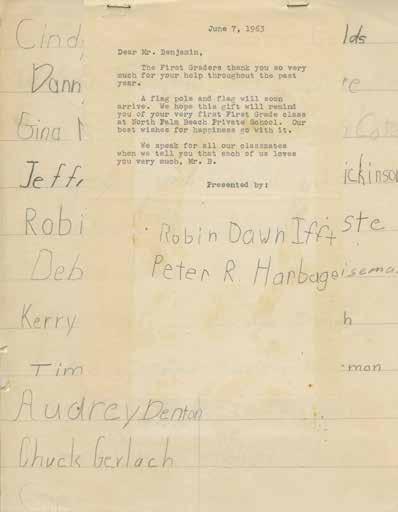 June 7, 1963
Dear Mr. Benjamin,
The First Graders thank you so very
much for your help throughout the past
year.
A flag pole and flag will soon
arrive. We hope this gift will remind
you of your very first First Grade class
at North Palm Beach Private School. Our
best wishes for happiness go with it.
We speak for all our classmates
when we tell you that each of us loves
you very much, Mr. B.
Presented by:
Robin Dawn Ifft
Peter R. Harbage
Cind lds
Dann re
Gina
Jeffr ickinson
Robi ste
Deb isema
Kerry h
Tim man
Audrey Denton
Chuck Gerlach